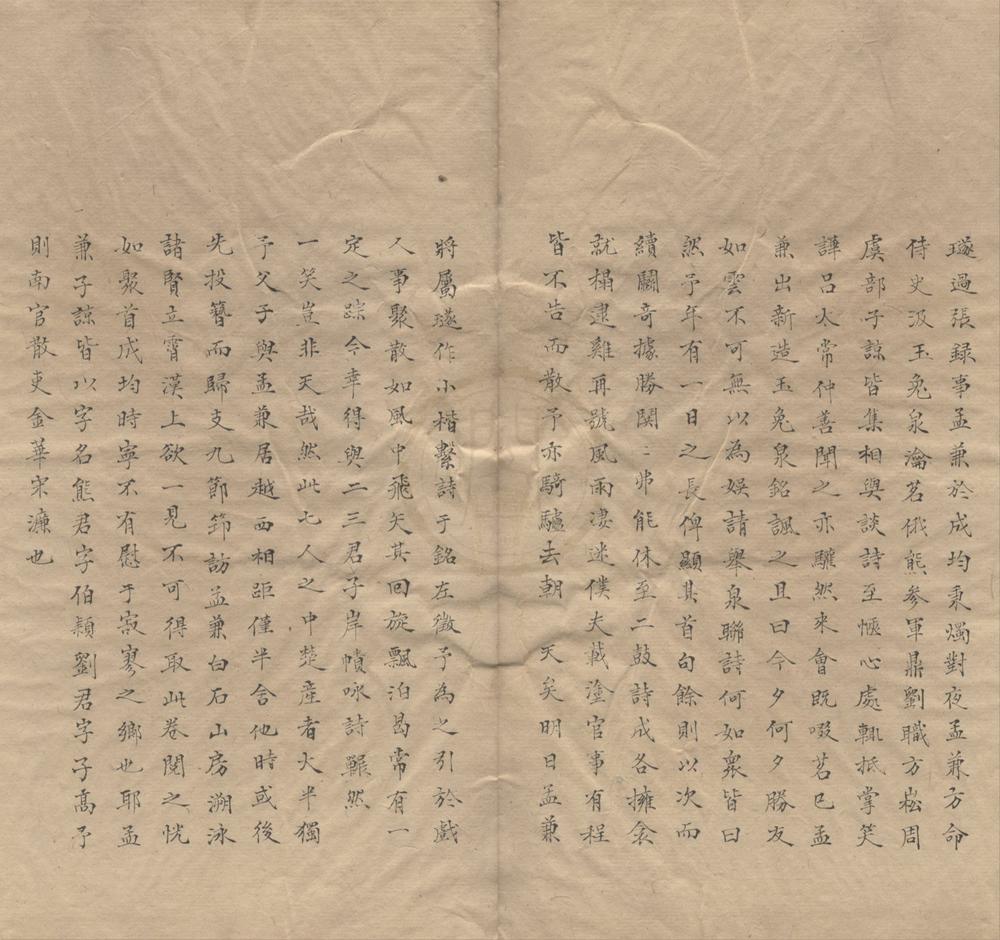 璲過張録事孟兼於成均秉燭對夜孟兼方命
侍史汲玉兔泉瀹茗俄熊參軍鼎劉職方崧周
虞部子諒皆集相與談詩至愜心處輒抵掌笑
譁呂太常仲善聞之亦驩然來會既啜茗已孟
兼出新造玉兔泉銘諷之且曰今夕何夕勝友
如雲不可無以為娛請舉泉聯詩何如衆皆曰
然予年有一日之長俾顯其首句餘則以次而
續鬭奇據勝関〻弗能休至二鼓詩成各擁衾
就榻逮雞再號風雨淒迷僕夫載塗官事有程
皆不告而散予亦騎驢去朝 天矣明日孟兼
將屬璲作小楷繫詩于銘左徵予為之引於戲
人事聚散如風中飛矢其回旋飄泊曷常有一
定之踪今幸得與二三君子岸幘咏詩驩然
一笑豈非天哉然此七人之中楚産者大半獨
予父子與孟兼居越西相距僅半舍他時或後
先投簪而歸支九節筇訪孟兼白石山房溯泳
諸賢立霄漢上欲一見不可得取此卷閱之恍
如聚首成均時寧不有慰于寂寥之鄉也耶孟
兼子諒皆以字名熊君字伯穎劉君字子高予
則南宫散吏金華宋濂也